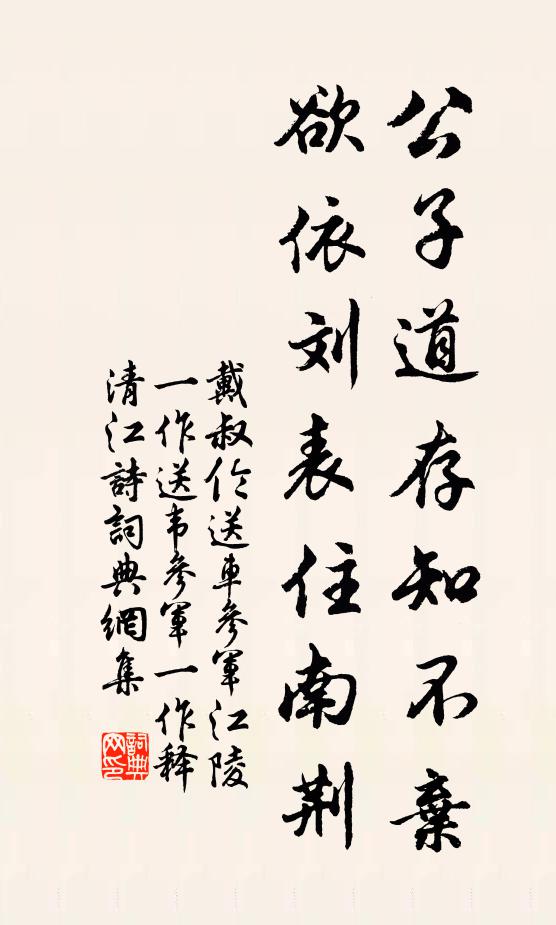 公子道存知不棄
欲依刘表住南荆
戴叔伦送車參軍江陵
一作送韦參軍一作释
清江詩詞典網集
詞典
网印